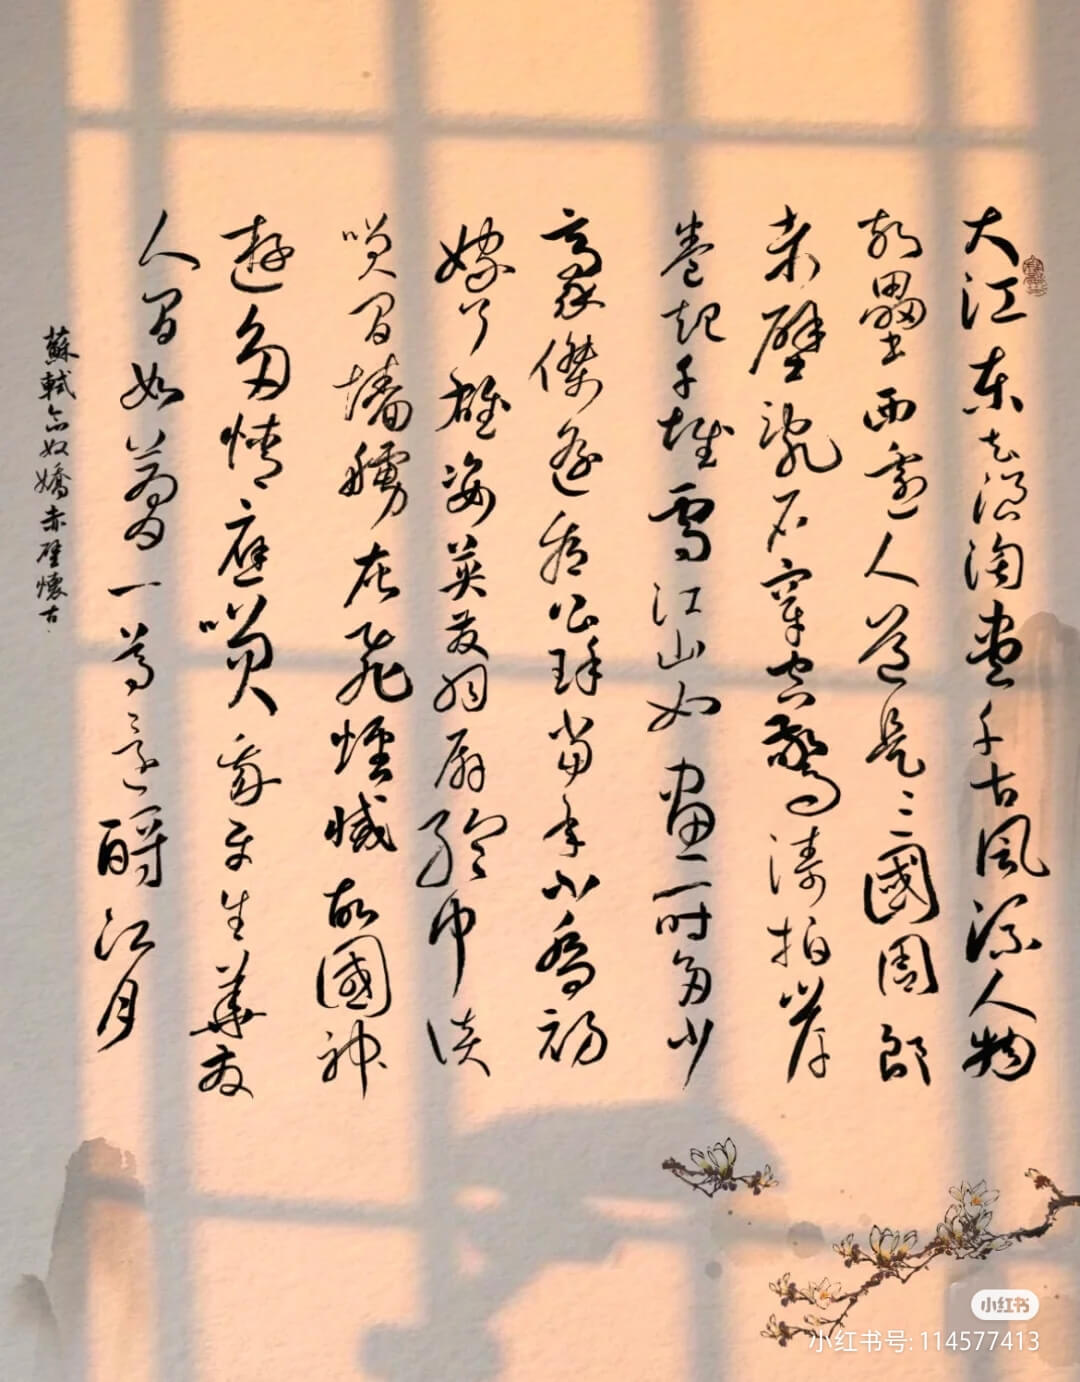 大江東去浪淘盡千古風流人物
故壘西邊人道是三國周郎
赤壁亂石穿空驚濤拍岸
卷起千堆雪江山如畫一時多少
豪傑遙想公瑾當年小喬初
嫁了雄姿英發羽扇綸巾談
咲間檣艣灰飛煙滅故國神
遊多情應咲我早生華发
人間如夢一尊還酹江月
蘇軾念奴嬌赤壁懷古
小红书
小红书号: 114577413